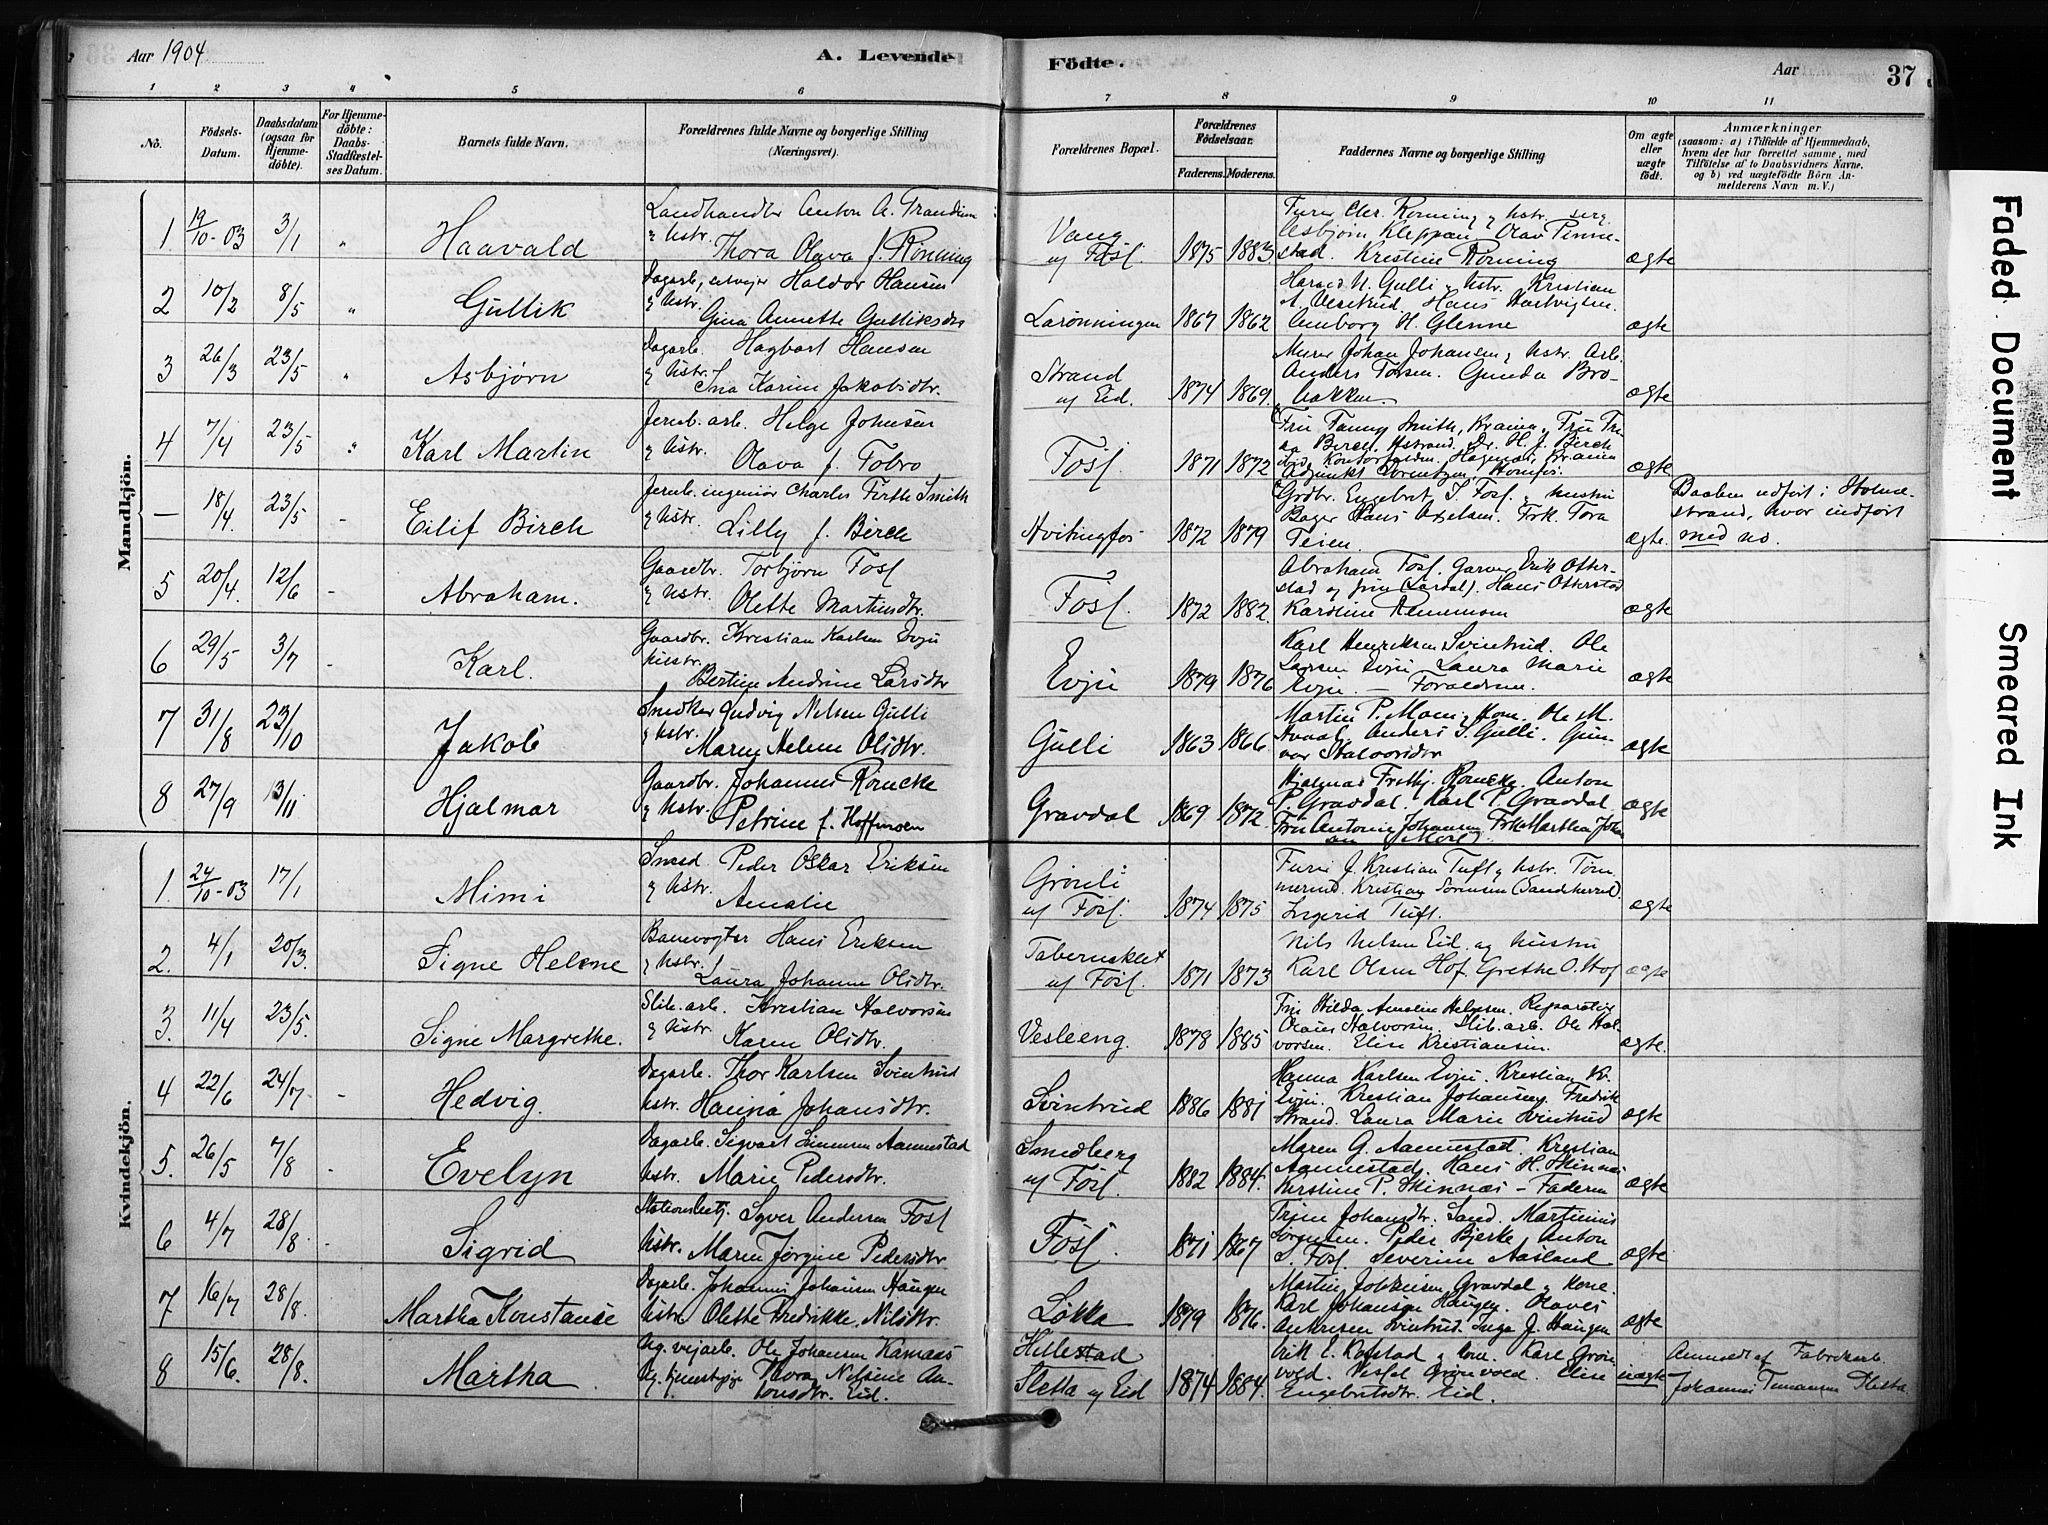 Aar 1904
A. Levende Födte.
Aar
37
1 2 3 4 5 6 7 8 9 10 11
No.
Födsels-Datum.
Daabsdatum (ogsaa for Hjemmedöbte).
For Hjemmedöbte: Daabs-Stadfæstelses Datum.
Barnets fulde Navn.
Forældrenes fulde Navne og borgerlige Stilling (Næringsvei).
Forældrenes Bopæl.
Forældrenes Födselsaar.
Faderens. Moderens.
Faddernes Navne og borgerlige Stilling
Om ægte eller uægte födt.
Anmærkninger
(saasom: a) i Tilfælde af Hjemmedaab, hvem der har forrettet samme, med Tilföielse af to Daabsvidners Navne, og b) ved uægtefödte Börn Anmelderens Navn m. V.)
Mandkjön.
1 19/10-03 3/1 " Haavald
Landhandler Anton A. Trandum
& Hstr. Thora Olava f. Rönning
Vang u/ Fosf. 1875 1883.
Rönning & hstr.
Asbjörn Kleppan, Olav
stad. Kristine Rönning
ægte
2 10/2 8/5 " Gullik
Dagarb., Haldor Hansen
& Hstr. Gina Annette Gulliksdtr
Larönningen 1867 1862
N. Gulli & hstr. Kristian
Hans Hartvigsen.
H. Glenne
ægte
3 26/3 23/5 " Asbjörn
Dagarb. Hagbart Hansen
& Hstr. Ina Karine Jakobsdtr.
Strand u/ Eid. 1874 1869.
Murer Johan Johansen & hstr. Arb.
Anders Torsen. Gunda Brobakken.
ægte
4 7/4 23/5 " Karl Martin
Jernb. arb. Helge Johnsen
& Hstr. Olava f. Tobro
Fosf. 1871 1872
Fru Fanny Smith, Krania, Fru
Birch, Dr. H. J. Birch
ægte
— 18/4. 23/5 - Eilif Birch
Jernb. ingeniör Charles Firth Smith
& Hstr. Lilly f. Birch
Hvitingfos 1872 1879
Grdbr. Engebret S. Fosf. & hustru
Bager Hans Axelsen. Frk. Tora
Teien.
ægte.
Daaben udfört i Holmestrand, hvor indfört med no.
5 20/4. 12/6 - Abraham.
Gaardbr. Torbjörn Fosf
& Hstr. Olette Martinsdtr.
Fosf. 1872 1882.
Abraham Fosf. Garver Erik Otterstad og fru (Lardal). Hans Otterstad
Karoline
ægte
6 29/5 3/7 - Karl.
Gaardbr. Kristian Karlsen Evju
hustr. Bertine Andrine Larsdtr
Evju 1879 1876
Karl Henriksen Svintrud. Ole
Larsen Evju Laura Marie
Evju. — Forældrene.
ægte
7 31/8 23/10 Jakob
Snedker Ludvig Nilsen Gulli
& Hstr. Maren Helene Olsdtr.
Gulli 1863 1866.
Martin P. Moen & kone. Ole M.
Hvaal. Anders S. Gulli. Gunvor Halvorsdtr
ægte
8 27/9 13/11 Hjalmar
Gaardbr. Johannes Röncke
& Hstr. Petrine f. Hoffmoen
Gravdal 1869 1872.
Hjalmar Frithj. Röncke. Anton
P. Gravdal. Karl P. Gravdal
Fru Antonie Johansen Frk. Martha
ægte
Kvindekjön.
1 24/10-03 17/1 Mimi
Smed Peder Oskar Eriksen
& Hstr. Amalie
Grönli u/ Fosf. 1874 1875
J. Kristian Tuft & hstr.
Kristian Sörensen (Sandhered).
Ingerid Tuft.
ægte
2. 4/1 20/3. Signe Helene
Banevogter Hans Eriksen
& Hstr. Laura Johanne Olsdtr.
Tabernaklet u/ Fosf. 1871 1873
Nils Nilsen Eid og hustru
Karl Olsen Hof. Grethe O. Hof
ægte
3. 11/4 23/5 Signe Margrethe.
Slib. arb. Kristian Halvorsen
& Hstr. Karen Olsdtr.
Vesleeng. 1878 1885.
Frk. Hilda Amalie Reparatör
Olaus Halvorsen. Slib. arb. Ole Halvorsen. Elise Kristiansen.
ægte.
4 22/6 24/7 - Hedvig.
Dagarb. Thor Karlsen Svintrud
Hstr. Hanna Johansdtr.
Svintrud 1886 1881
Hanna Karlsen Evju. Kristian K.
Evju. Kristian Johansen, Fredrik
Strand. Laura Marie Svintrud
ægte
5. 26/5 7/8 - Evelyn
Dagarb. Sigvart Simensen Aannestad
Hstr. Marie Pedersdtr.
Smedberg u/ Fosf. 1882 1884.
Maren G. Aannestad. Kristian
Aannestad. Hans H. Skinnes
Kirstine P. Skinnes – Faderen
ægte
6 4/7 28/8. - Sigrid
Stationsbetj. Syver Andersen Fosf
Hstr. Maren Jörgine Pedersdtr
Fosf. 1871 1867
Trine Johansdtr. Sand. Martinius
Sörensen. Peder Bjerke. Anton
S. Fosf. Severine Aasland
ægte
7 16/7 28/8. Martha Konstanse
Dagarb. Johannes Johansen Haugen
Hstr. Olette Fredrikke Nilsdtr.
Løkka 1879 1876.
Martin Johansen Gravdal & kone
Karl Johansen Haugen. Olaves
Andresen Svintrud. Inga J. Haugen
ægte
8 15/6. 28/8. Martha
Ug. vejarb. Ole Johansen Kamaas
Ug. tjenestepige Thora Nilsine Antonsdtr. Eid.
Hillestad Sletta u/ Eid 1874 1884.
Erik E. Kopstad & kone. Karl Grönvold. Grönvold. Elise
Engebretsdtr. Eid.
uægte
Anmeldt af Fabrikarb.
Johannes Sletta
Faded Document
Smeared Ink